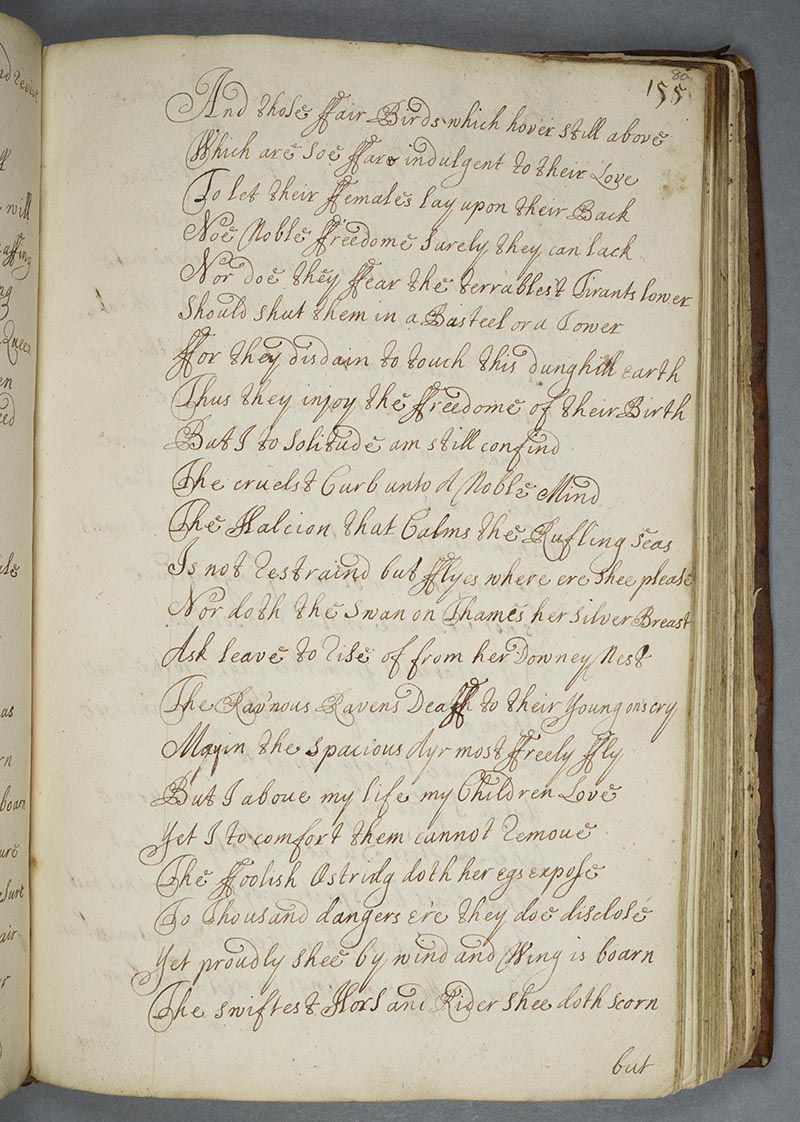 80
155
And those ffair Birds which hover still above
Which are soe ffare indulgent to their Love
To let their ffemales lay upon their Back
Noe Noble ffreedome surely they can lack
Nor doe they ffear the terrablest Tirants lower
should shut them in a Basteel or a Tower
ffor they disdain to touch this dunghill earth
Thus they injoy the ffreedome of their Birth
But I to solitude am still confind
The cruelst Curb unto A Noble Mind
The Halcion that Calms the Rufling seas
Is not restraind but fflyes where ere shee please
Nor doth the swan on Thames her silver Breast
Ask leave to rise of from her Downey Nest
The Rav'nous Ravens Deaff to their Young ons cry
May in the spacious Ayr most ffreely ffly
But I aboue my life my Children Love
Yet I to comfort them cannot remoue
The ffoolish Ostridg doth her egs expose
To Thousand dangers e're they doe disclose
Yet proudly shee by wind and Wing is boarn
The swiftest Hors and Rider shee doth scorn
but
will
Queen
as
boarn